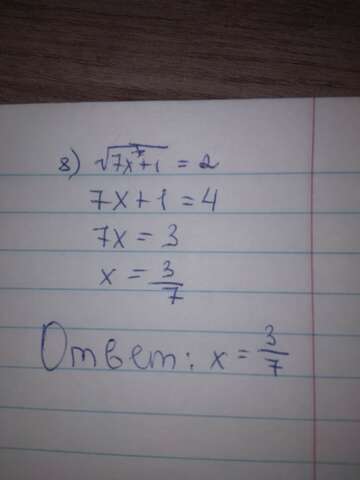 8) √7x+1 = 2
7x+1 = 4
7x = 3
x = 3/7
Ответ: x = 3/7